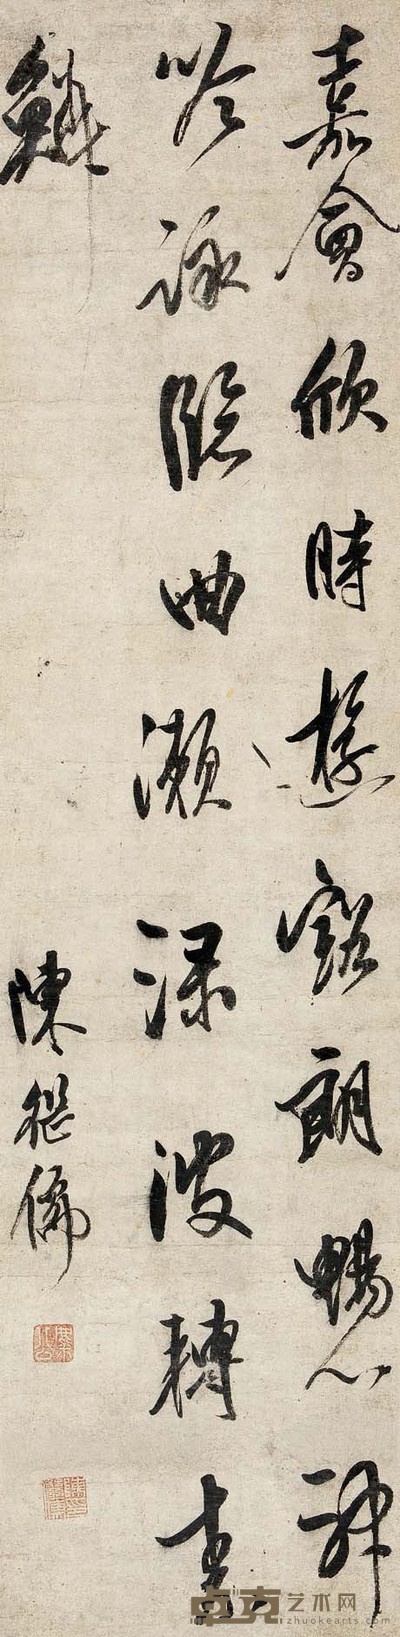 嘉會欣時遊豁朗暢心神
吟詠臨曲瀨淥波轉素
鱗
陳繼儒
卓克艺术网
zhuokearts.com